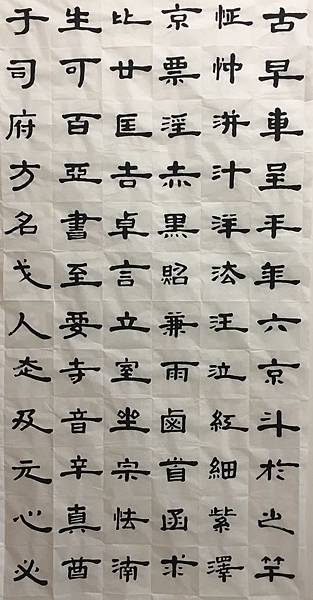 古早車呈手年六京斗於之竿
怔忡洴汁洋泫汪泣紅細紫澤
京票淫赤黑照兼雨鹵首函求
比廿匡吉卓言立室坐宗怯湳
生可百亞書至要寺音辛真酋
于司府方名戈人忞及元心必